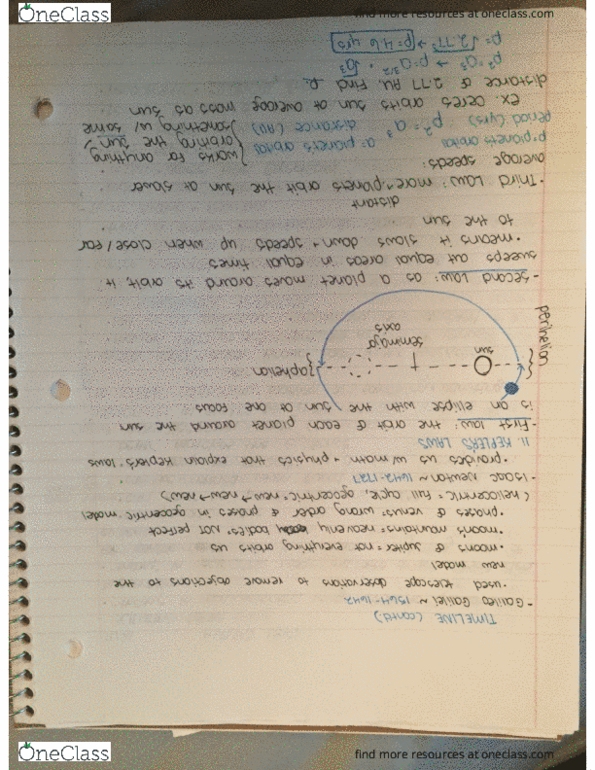 OneClass
find more resources at oneclass.com
TIMELINE (contd)
- Galileo Galilei ~ 1564-1642
• used telescope observations to remove objections to the
new model
• moons of Jupiter = not everything orbits us
• moon's mountains = heavenly bodies = NOT perfect
• phases of venus = wrong order of phases in geocentric model
(heliocentric = full cycle, geocentric = new → new → new)
- Isaac Newton ~ 1642-1727
• provides us w/ math + physics that explain Keplers' laws
11. KEPLER'S LAWS
- First law: the orbit of each planet around the sun
is an ellipse with the sun at one focus
perihelion
sun
semimajor
axis
aphelion
- Second Law: as a planet moves around its orbit, it
sweeps out equal areas in equal times
• means it slows down + speeds up when close/far
to the sun
• Third Law: more distant planets orbit the sun at slower
average speeds:
p: planets orbital period (yrs) p² = a³ a: planets orbital distance (AU)
{works for anything orbiting the sun / something w/ same mass as sun
ex. ceres orbits sun at average
distance of 2.77 AU. Find P.
p² = a³ → p = a^3/2 = √a³
p = √2.77³ → p = 4.6 yrs
OneClass
find more resources at oneclass.com